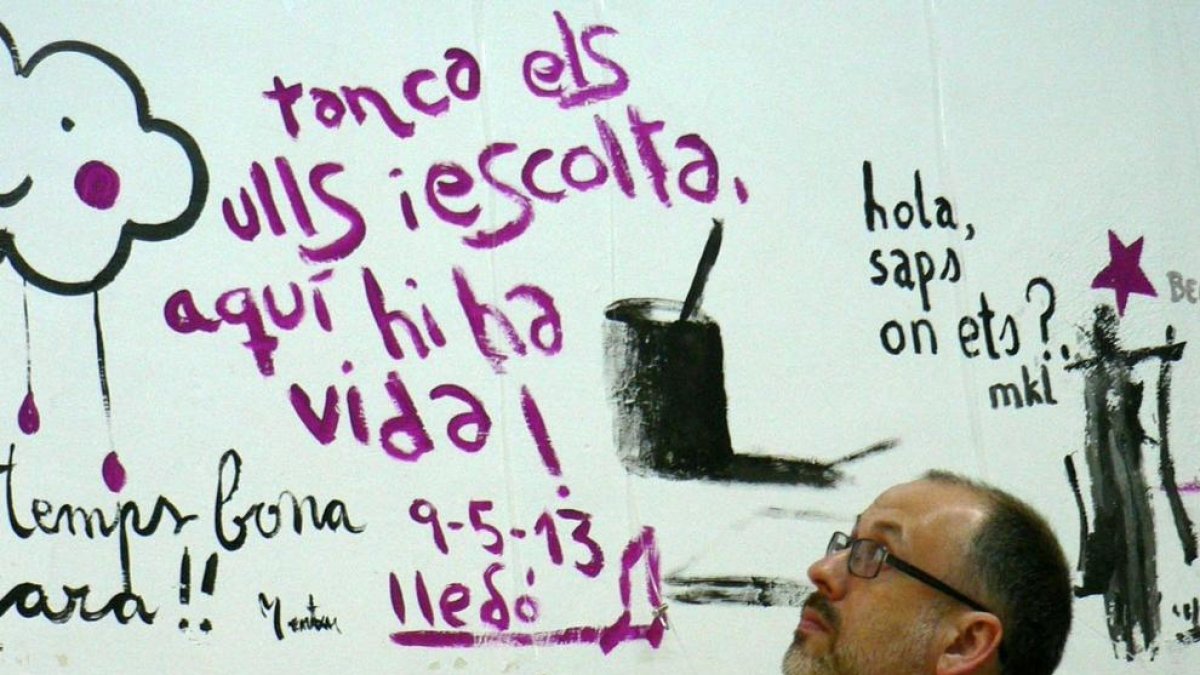 tanca els
ulls i escolta,
aquí hi ha
vida!
9-5-13
lledó
hola,
saps
on ets?..
mkl
temps bona
ara!!